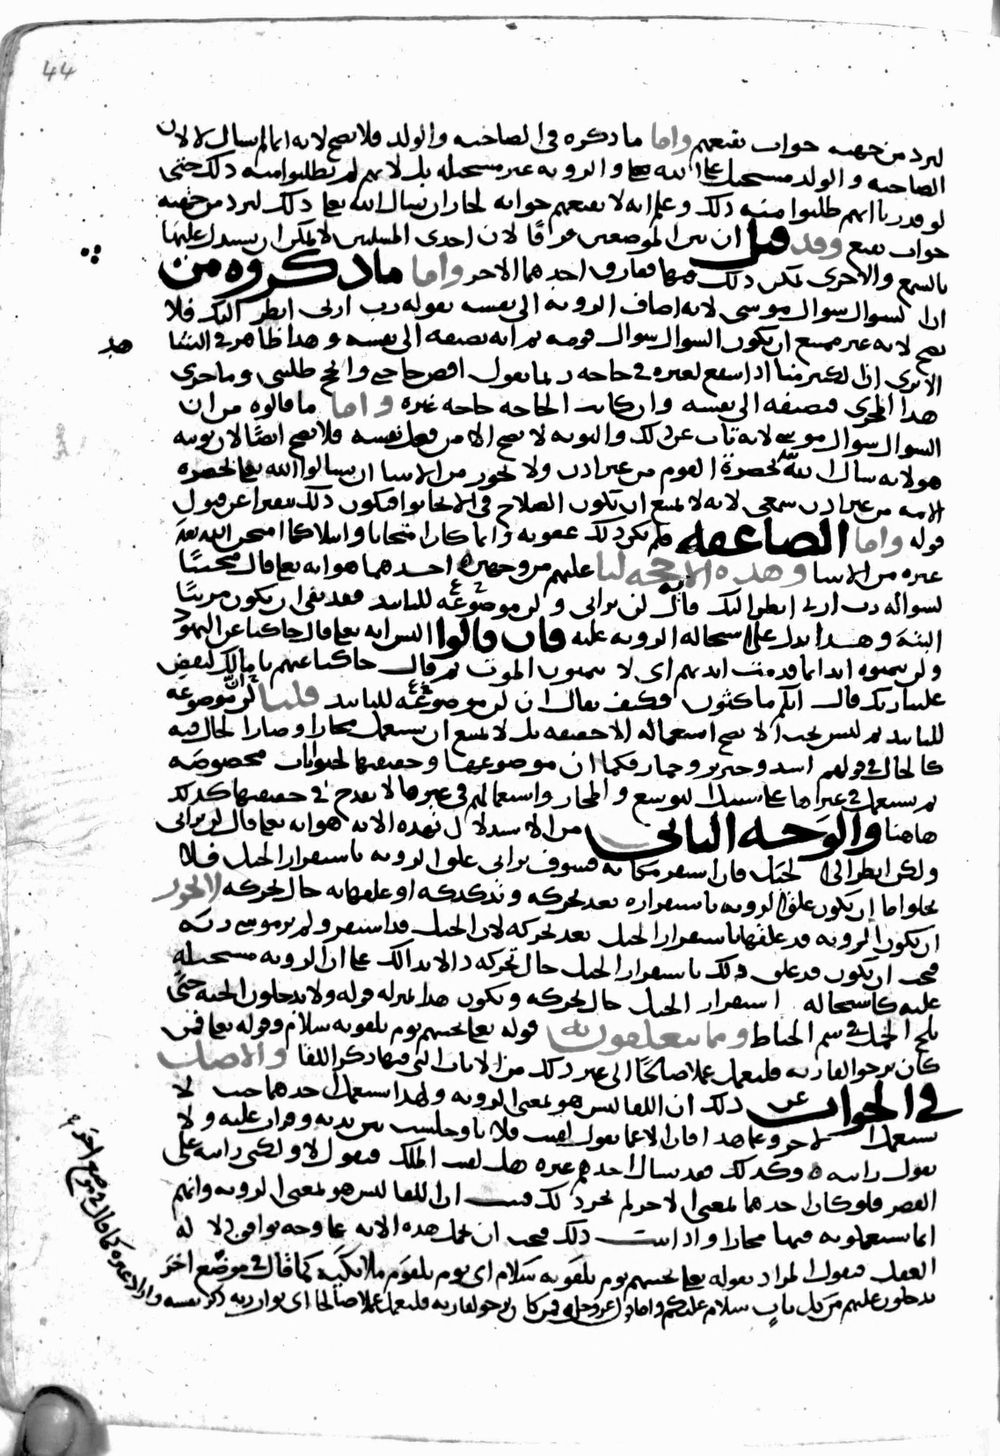 44
ليرد من جهته جواب يقنعهم واما ما ذكره في الصاحبة والولد فلا يصح لانه انما لم يسال لا لان
الصاحبة والولد مستحيل على الله تعالى والرويه غير مستحيله بل لانهم لم يطلبوا منه ذلك حتى
لو قدرنا انهم طلبوا منه ذلك وعلم انه لا يقنعهم جوابه لجاز ان يسال الله تعالى ذلك ليرد من جهته
جواب يقنع وقد قيل ان بين الموضعين فرقا لان احدى المسلتين لا يمكن ان يستدل عليها
بالسمع والاخرى يمكن ذلك فيها ففارق احدهما الاخر واما ما ذكروه من
ان السوال سوال موسى لانه اضاف الرويه الى نفسه بقوله رب ارني انظر اليك فلا
يصح لانه غير ممتنع ان يكون السوال سوال قومه ثم انه يضيفه الى نفسه وهذا ظاهر في
الا ترى ان الكثير منا اذا شفع لغيره في حاجة ربما يقول اقض حاجتي وانجح طلبتي وما جرى
هذا المجرى فيضيفه الى نفسه وان كانت الحاجه حاجه غيره واما ما قالوه من ان
السوال سوال موسى لانه تاب عن ذلك والتوبه لا تصح الا من فعل نفسه فلا يصح ايضا لان توبته
هو لانه سال الله بحضرة القوم من غير اذن ولا يجوز من الانبيا ان يسالوا الله تعالى بحضره
الامه من غير اذن سمعي لانه لا يمتنع ان يكون الصلاح في الا يجابوا فيكون ذلك تنفيرا عن قبول
قوله واما الصاعقه فلم يكن ذلك عقوبه وانما كان امتحانا وابتلا كما امتحن الله به
غيره من الانبيا وهذه الاية حجه لنا عليهم من وجهين احدهما هو انه تعالى قال مجيبا
لسواله رب ارني انظر اليك قال لن تراني ولن موضوعه للتابيد فقد نفى ان يكون مرييا
البته وهذا يدل على استحاله الرويه عليه فان قالوا اليس انه تعالى قال حاكيا عن اليهود
ولن يتمنوه ابدا بما قدمت ايديهم اي لا يتمنون الموت ثم قال حاكيا عنهم يا مالك ليقض
علينا ربك قال انكم ماكثون فكيف يقال ان لن موضوعه للتابيد قلنا ان لن موضوعه
للتابيد ثم ليس يجب الا يصح استعماله الا حقيقه بل لا يمتنع ان يستعمل مجازا وصار الحال فيه
كالحال في قولهم اسد وخنزير وحمار فكما ان موضوعها وحقيقتها لحيوانات مخصوصه
ثم يستعمل في غيرها على سبيل التوسع والمجاز واستعمالهم في غيرها لا يقدح في حقيقتها كذلك
هاهنا والوجه الثاني من الاستدلال بهذه الايه هو انه تعالى قال لن تراني
ولكن انظر الى الجبل فان استقر مكانه فسوف تراني علق الرويه باستقرار الجبل فلا
يخلو اما ان يكون علق الرويه باستقراره بعد تحركه وتدكدكه او علقها به حال تحركه لا يجوز
ان يكون الرويه قد علقها باستقرار الجبل بعد تحركه لان الجبل قد استقر ولم ير موسى ربه
فيجب ان يكون قد علق ذلك باستقرار الجبل حال تحركه دالا بذلك على ان الرويه مستحيله
عليه كاستحاله استقرار الجبل حال تحركه ويكون هذا بمنزله قوله ولا يدخلون الجنه حتى
يلج الجمل في سم الخياط ومما يتعلقون به قوله تعالى تحيتهم يوم يلقونه سلام وقوله تعالى فمن
كان يرجو لقا ربه فليعمل عملا صالحا الى غير ذلك من الايات التي فيها ذكر اللقا والاصل
في الجواب عن ذلك ان اللقا ليس هو بمعنى الرويه ولهذا يستعمل احدهما حيث لا
يستعمل الاخر وعلى هذا فان الاعمى يقول لقيت فلانا وجلست بين يديه وقرات عليه ولا
يقول رايته وكذلك فقد يسال احدهم غيره هل لقيت الملك فيقول لا ولكن رايته على
القصر فلو كان احدهما بمعنى الاخر لم يجز ذلك فثبت ان اللقا ليس هو بمعنى الرويه وانهم
انما يستعملونه فيها مجازا واذا ثبت ذلك فيجب ان نحمل هذه الايه على وجه يوافق دلاله
العقل فنقول المراد بقوله تعالى تحيتهم يوم يلقونه سلام اي يوم يلقوم ملائكته كما قال في موضع اخر
يدخلون عليهم من كل باب سلام عليكم واما قوله عز وجل فمن كان يرجو لقا ربه فليعمل عملا صالحا اي ثواب ربه ذكر نفسه واراد غيره كما قال في موضع اخر